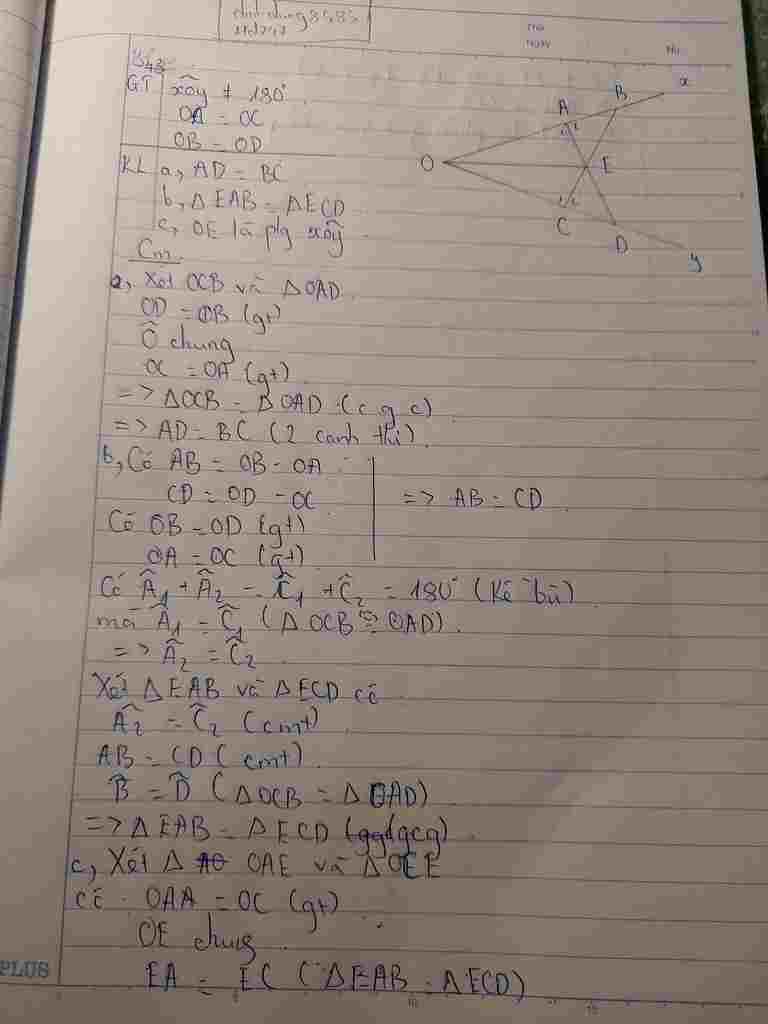 B43
GT xôy ≠ 180°
OA = OC
OB = OD
KL a, AD = BC
b, Δ EAB = Δ ECD
c, OE là plg xôy
A B x
1 2
O E
1 2
C D y
Cm
a, Xét OCB và Δ OAD
OD = OB (gt)
Ô chung
OC = OA (gt)
=> ΔOCB = ΔOAD (c g c)
=> AD = BC (2 canh tứ)
b, Có AB = OB - OA
CD = OD - OC => AB = CD
Có OB = OD (gt)
OA = OC (gt)
Có Â₁ + Â₂ = Ĉ₁ + Ĉ₂ = 180° (Kề bù)
mà Â₁ = Ĉ₁ (Δ OCB = OAD)
=> Â₂ = Ĉ₂
Xét Δ EAB và Δ ECD có
Â₂ = Ĉ₂ (cmt)
AB = CD (cmt)
B̂ = D̂ (ΔOCB = ΔOAD)
=> Δ EAB = Δ ECD (gcg)
c, Xét Δ OAE và Δ OCE
có OAA = OC (gt)
OE chung
EA = EC (ΔEAB = ΔECD)
PLUS